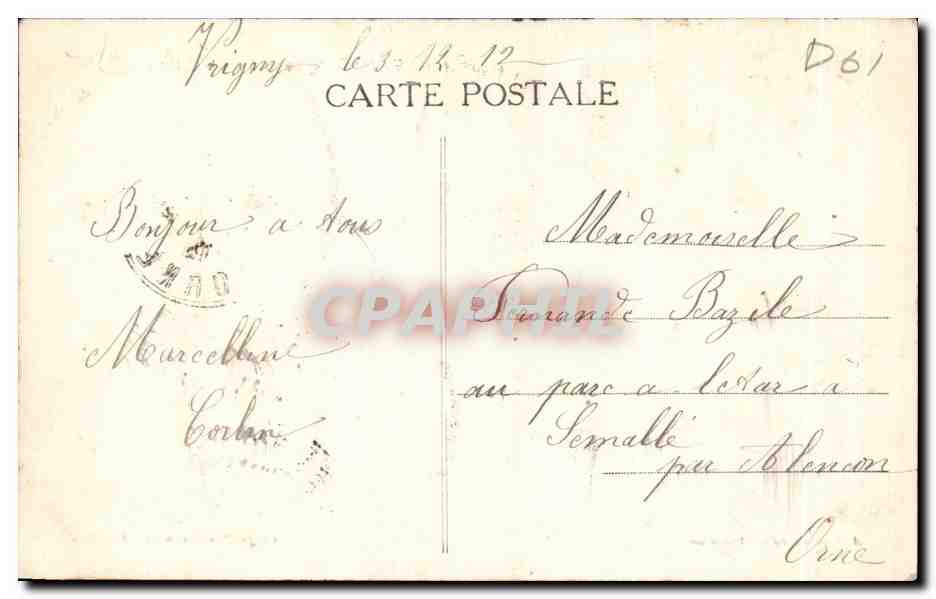 Vrigny le 3-12-12
D61
CARTE POSTALE
Bonjour a tous
ORNE
Marcelline
Corbin
Mademoiselle
Fernande Bazile
au parc a letar à
Semallé
par Alencon
Orne
CPAPHIL